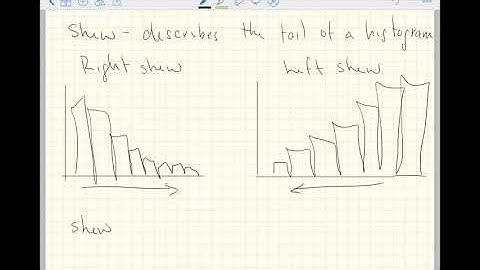 Skew - describes the tail of a histogram
Right skew
Left skew
skew